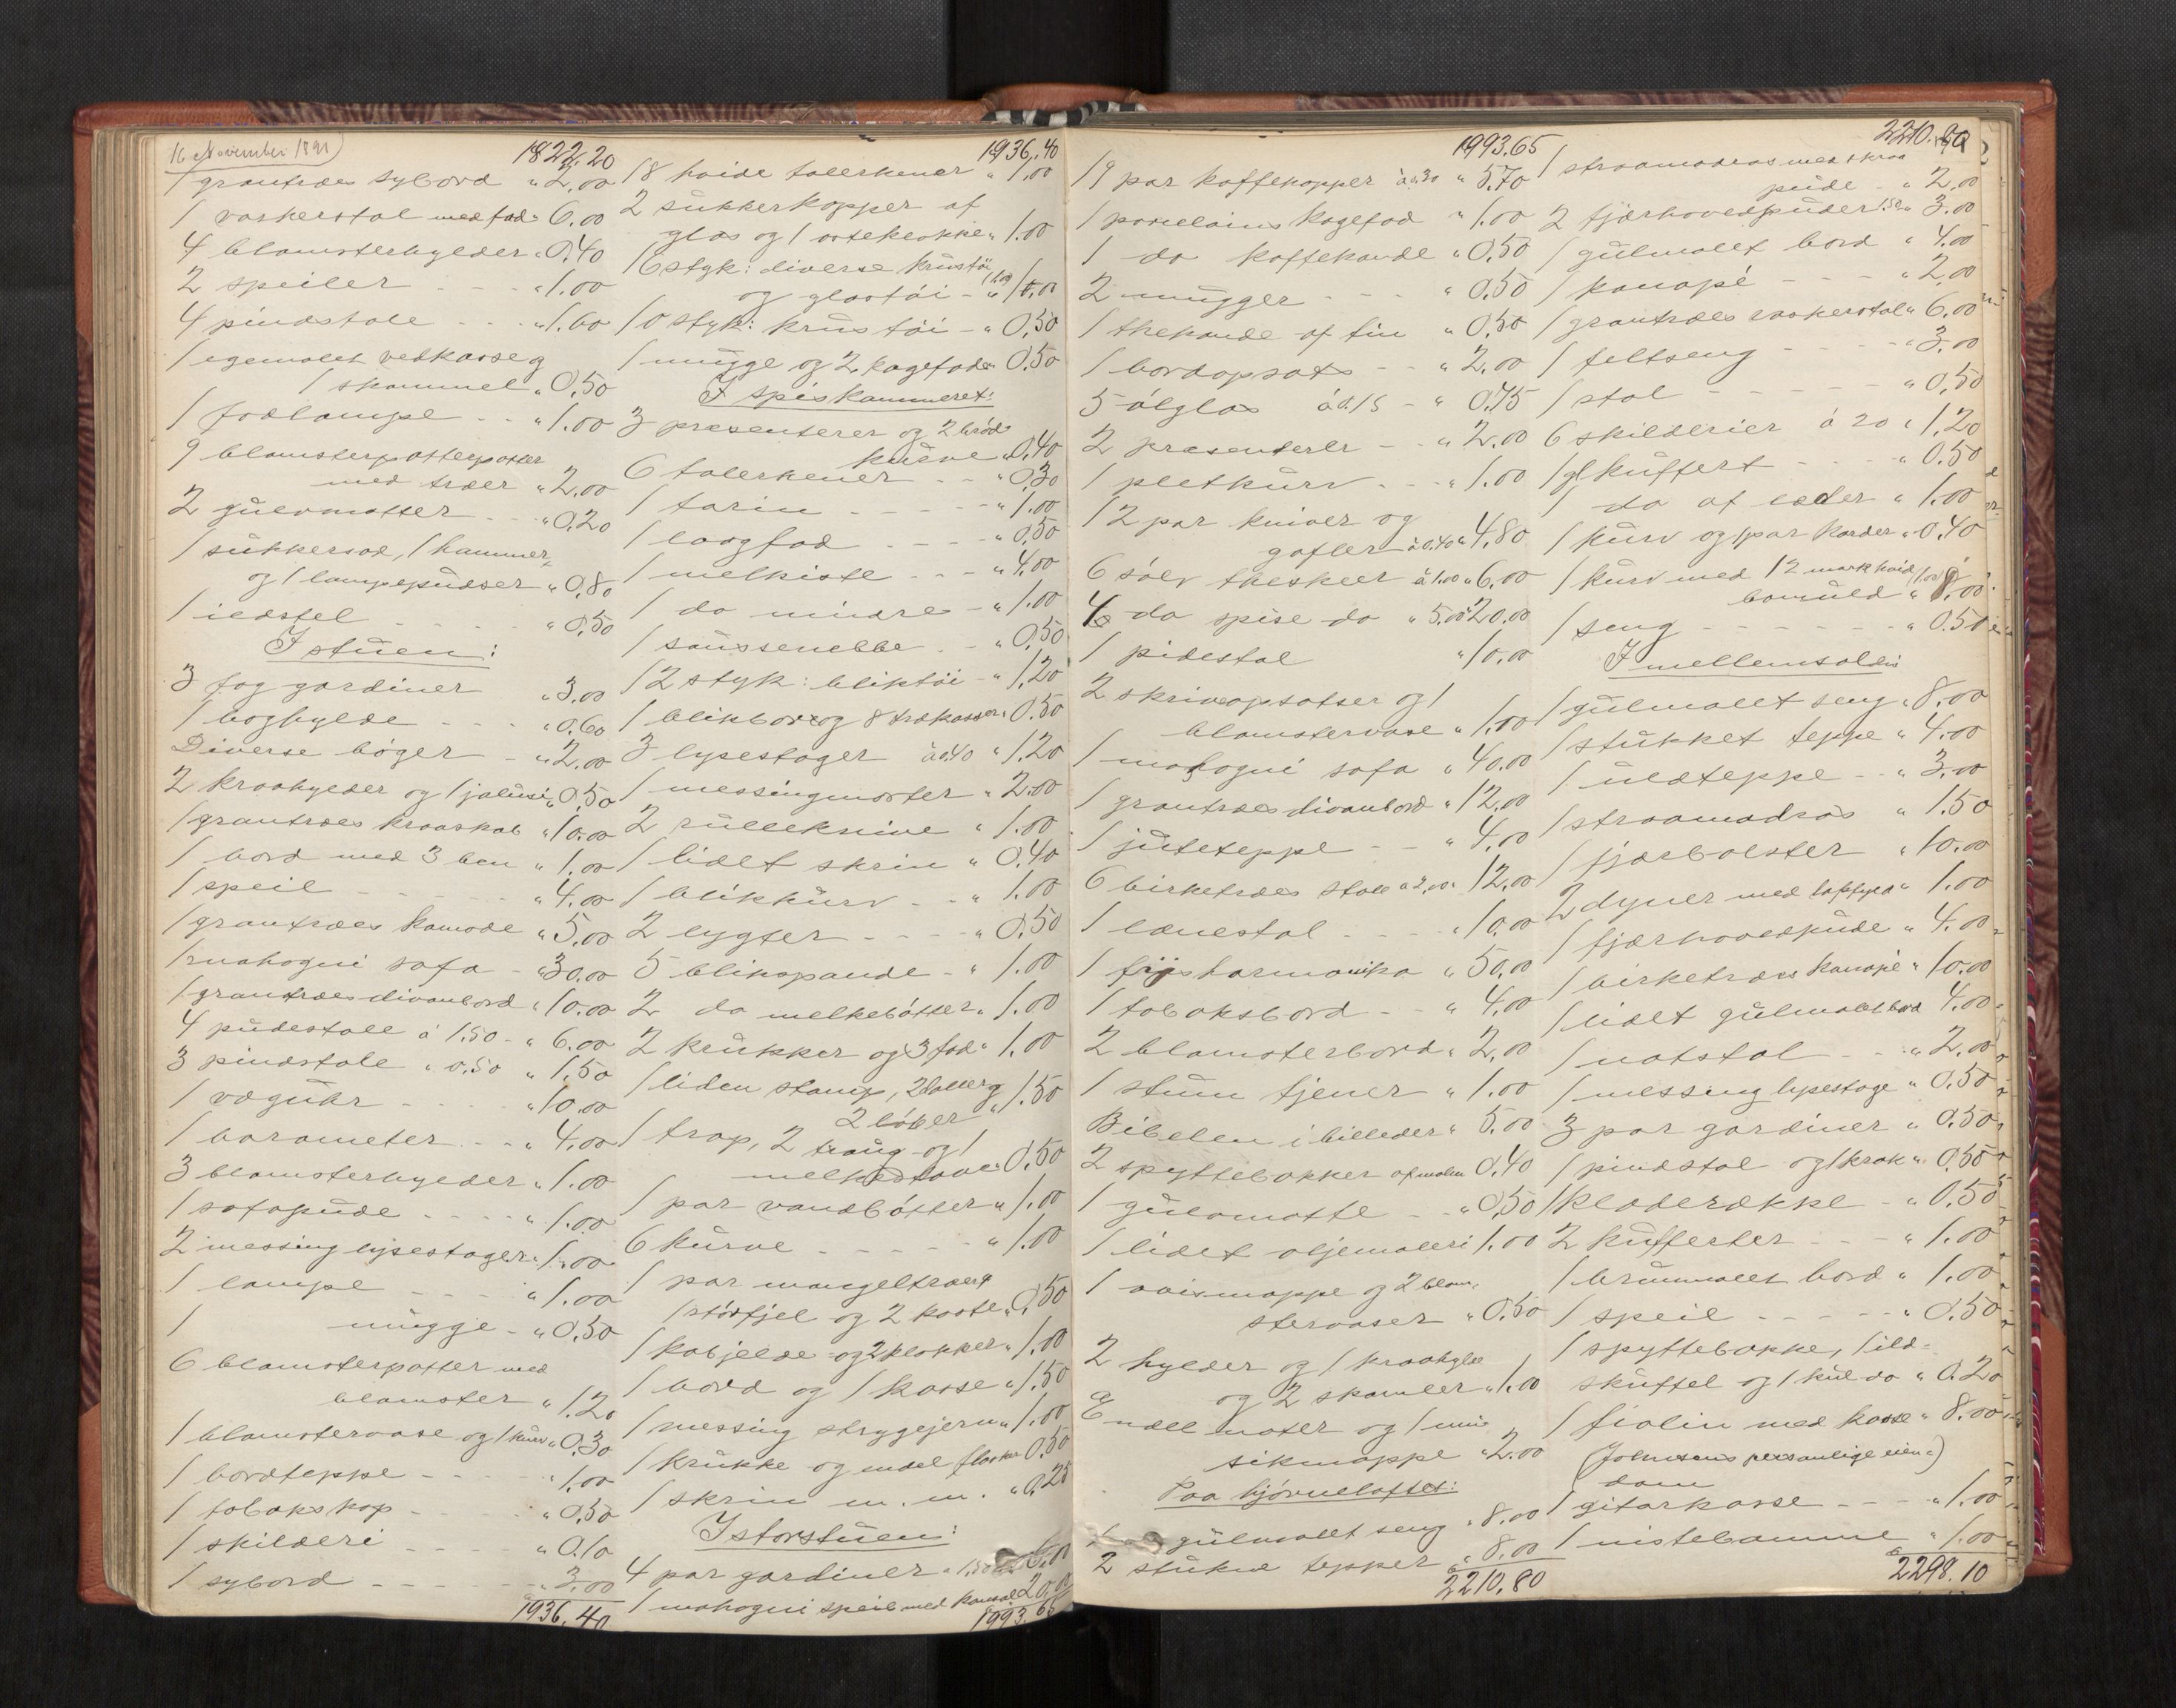 16 November 1891)
1822.20
1 grantræs sybord " 2.00
1 vaskerstol med fad " 6.00
4 blomsterhylder " 0.40
2 speiler - - - " 1.00
4 pindstole - - - " 1.60
1 egemalet vedkasse og
1 skammel " 0.50
1 jodlampe - - " 1.00
9 blomsterpotterpotter
med træer " 2.00
2 gulvmatter - - " 0.20
1 sukkersod, 1 hammer
og 1 lampepudser " 0.80
1 ildstel - - - - " 0.50
I stuen:
3 fag gardiner " 3.00
1 boghylde - - - " 0.60
Diverse bøger - " 2.00
2 kraahylder og 1 jalusi " 0.50
1 grantræs kraaskab " 10.00
1 bord med 3 ben " 1.00
1 speil - - - - " 4.00
1 grantræs komode " 5.00
1 mahogni sofa - " 30.00
1 grantræs divanbord " 10.00
4 pudestole á 1.50 - " 6.00
3 pindstole " 0.50 " 1.50
1 væguhr - - - - " 10.00
1 barometer - - " 4.00
3 blomsterhylder " 1.00
1 sofapude - - - - " 1.00
2 messing lysestager " 1.00
1 lampe - - - " 1.00
1 mugge - " 0.50
6 blomsterpotter med
blomster " 1.20
1 blomstervase og 1 kurv " 0.30
1 bordteppe - - - " 1.00
1 tobakskop - - - - " 0.50
1 skilderi - - - - " 0.10
1 sybord - - - - - " 3.00
1936.40
1936.40
18 hvide tallerkener " 1.00
2 sukkerkopper af
glas og 1 osteklokke " 1.00
16 styk: diverse krustøi
og glastøi - "
10 styk: krustøi - " 0.50
1 mugge og 2 kagefade " 0.50
I spiskammeret:
3 presenterer og 2 brød
kurve " 0.40
6 talerkener - - " 0.30
1 tarin - - - - - " 1.00
1 laagfad - - - - " 0.50
1 melkiste - - - " 4.00
1 do mindre - " 1.00
1 saussenebbe - - " 0.50
12 styk: bliktøi - " 1.20
1 blikboxe og 8 trækasser " 0.50
3 lysestager à 0.40 " 1.20
1 messingmorter " 2.00
2 rulleknive " 1.00
1 lidet skrin " 0.40
1 blikkurv - - " 1.00
2 lygter - - - - " 0.50
5 blikspande - " 1.00
2 do melkebøtter " 1.00
2 krukker og 3 fad " 1.00
1 liden stamp, 2 baller og
2 løber " 1.50
1 trap, 2 traug og 1
" 0.50
1 par vandbøtter " 1.00
6 kurve - - - - - " 1.00
1 par mangeltræer
og 2 koste " 0.50
1 kobjelde og 2 klokker " 1.00
1 bord og 1 kasse " 1.50
1 messing strygejern " 1.00
1 krukke og endel flasker 0.50
1 skrin m. m. " 0.25
I storstuen:
4 par gardiner " 1.50 6.00
1 mahogni speil med konsol 20.00
1993.65
1993.65
19 par kaffekopper à 0.30 " 5.70
1 porselains kagefad " 1.00
1 do kaffekande " 0.50
2 mugger - - - " 0.50
1 thekande af tin " 0.50
1 bordopsats - - " 2.00
5 ølglas á 0.15 - " 0.75
2 præsenterer - - " 2.00
1 pletkurv - - - " 1.00
12 par kniver og
gafler à 0.40 " 4.80
6 sølv theskeer à 1.00 " 6.00
4 do spise do " 5.00 " 20.00
1 pidestal " 10.00
2 skriveopsatser og 1
blomstervase " 1.00
1 mahogni sofa " 40.00
1 grantræs divanbord " 12.00
1 juteteppe - - " 4.00
6 birketræs stole à 2.00 " 12.00
1 lænestol - - - - " 10.00
1 fijsharmonika " 50.00
1 tobaksbord - - " 4.00
2 blomsterbord " 2.00
1 stum tjener " 1.00
Bibelen i billeder " 5.00
2 spyttebakker af malm 0.40
1 gulvmatte - - " 0.50
1 lidet oljemaleri 1.00
1 avismappe og 2 blom-
stervaser " 0.50
2 hylder og 1 kraahylde
og 2 skamler " 1.00
Endel noter og 1 mu-
sikmappe " 2.00
Paa hjørneloftet:
1 gulmalet seng " 8.00
2 stukne tepper " 8.00
2210.80
2210.80
1 straamadras med skraa
pude - " 2.00
2 fjærhovedpuder 1.50 " 3.00
1 gulmalet bord " 4.00
1 kanapé - - - - " 2.00
1 grantræs vaskerstol " 6.00
1 feltseng - - - - " 3.00
1 stol - - - - - - " 0.50
6 skilderier á 20 " 1.20
1 gl kuffert - - - " 0.50
1 do af læder " 1.00
1 kurv og 1 par karder " 0.40
1 kurv med 12 mark hvid
bomuld "
1 seng - - - - - - - " 0.50
I mellemsalen
1 gulmalet seng " 8.00
1 stukket teppe " 4.00
1 uldteppe - - " 3.00
1 straamadras " 1.50
1 fjærbolster " 10.00
2 dyner med loftfyld " 1.00
1 fjærhovedpude " 4.00
1 birketræs kanapé " 10.00
1 lidet gulmalet bord 4.00
1 natstol - - " 2.00
1 messing lysestage " 0.50
3 par gardiner " 0.50
1 pindstol og 1 krak " 0.50
1 klæderække - " 0.50
2 kufferter - - - " 1.00
1 brunmalet bord " 1.00
1 speil - - - - " 0.50
1 spyttebakke, 1 ild-
skuffel og 1 kul do " 0.20
1 fiolin med kasse " 8.00
(Johnsens personlige eien-)
dom
1 gitarkasse - - - " 1.00
1 nistebomme " 1.00
2298.10